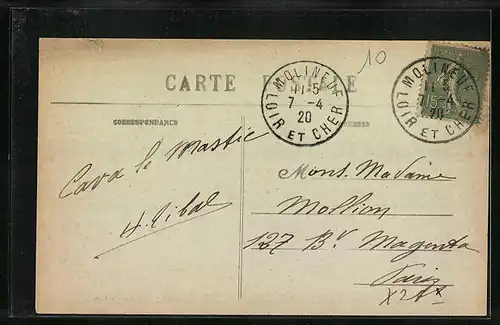 10
CARTE POSTALE
MOLINEUF
11-5
7-4
20
LOIR ET CHER
MOLINEUF
11-5
-4
20
LOIR ET CHER
CORRESPONDANCE
Cava le Mastic
Mons. Madame
Mollion
127 Bd Magenta
Paris